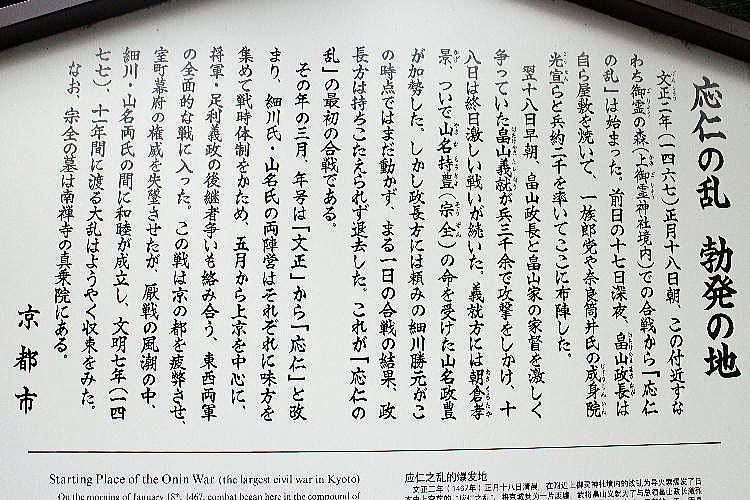 応仁の乱　勃発の地
文正二年（一四六七）正月十八日朝、この付近すな
わち御霊の森（上御霊神社境内）での合戦から「応仁
の乱」は始まった。前日の十七日深夜、畠山政長は
自ら屋敷を焼いて、一族郎党や奈良筒井氏の成身院
光宣らと兵約二千を率いてここに布陣した。
翌十八日早朝、畠山政長と畠山家の家督を激しく
争っていた畠山義就が兵三千余で攻撃をしかけ、十
八日は終日激しい戦いが続いた。義就方には朝倉孝
景、ついで山名持豊（宗全）の命を受けた山名政豊
が加勢した。しかし政長方には頼みの細川勝元がこ
の時点ではまだ動かず、まる一日の合戦の結果、政
長方は持ちこたえられず退去した。これが「応仁の
乱」の最初の合戦である。
その年の三月、年号は「文正」から「応仁」と改
まり、細川氏・山名氏の両陣営はそれぞれに味方を
集めて戦時体制をかため、五月から上京を中心に、
将軍・足利義政の後継者争いも絡み合う、東西両軍
の全面的な戦に入った。この戦は京の都を疲弊させ、
室町幕府の権威を失墜させたが、厭戦の風潮の中、
細川・山名両氏の間に和睦が成立し、文明七年（一四
七七）、十一年間に渡る大乱はようやく収束をみた。
なお、宗全の墓は南禅寺の真乗院にある。
京都市
Starting Place of the Onin War (the largest civil war in Kyoto)
On the morning of January 18th, 1467, combat began here in the compound of
应仁之乱的爆发地
文正二年（1467年）正月十八日清晨，在附近上御灵神社境内的战乱为导火索爆发了日